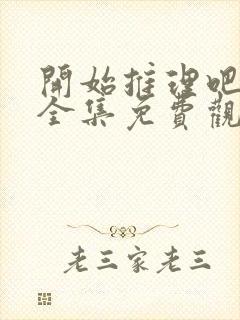 開始推理吧
全集免費觀
老三家老三